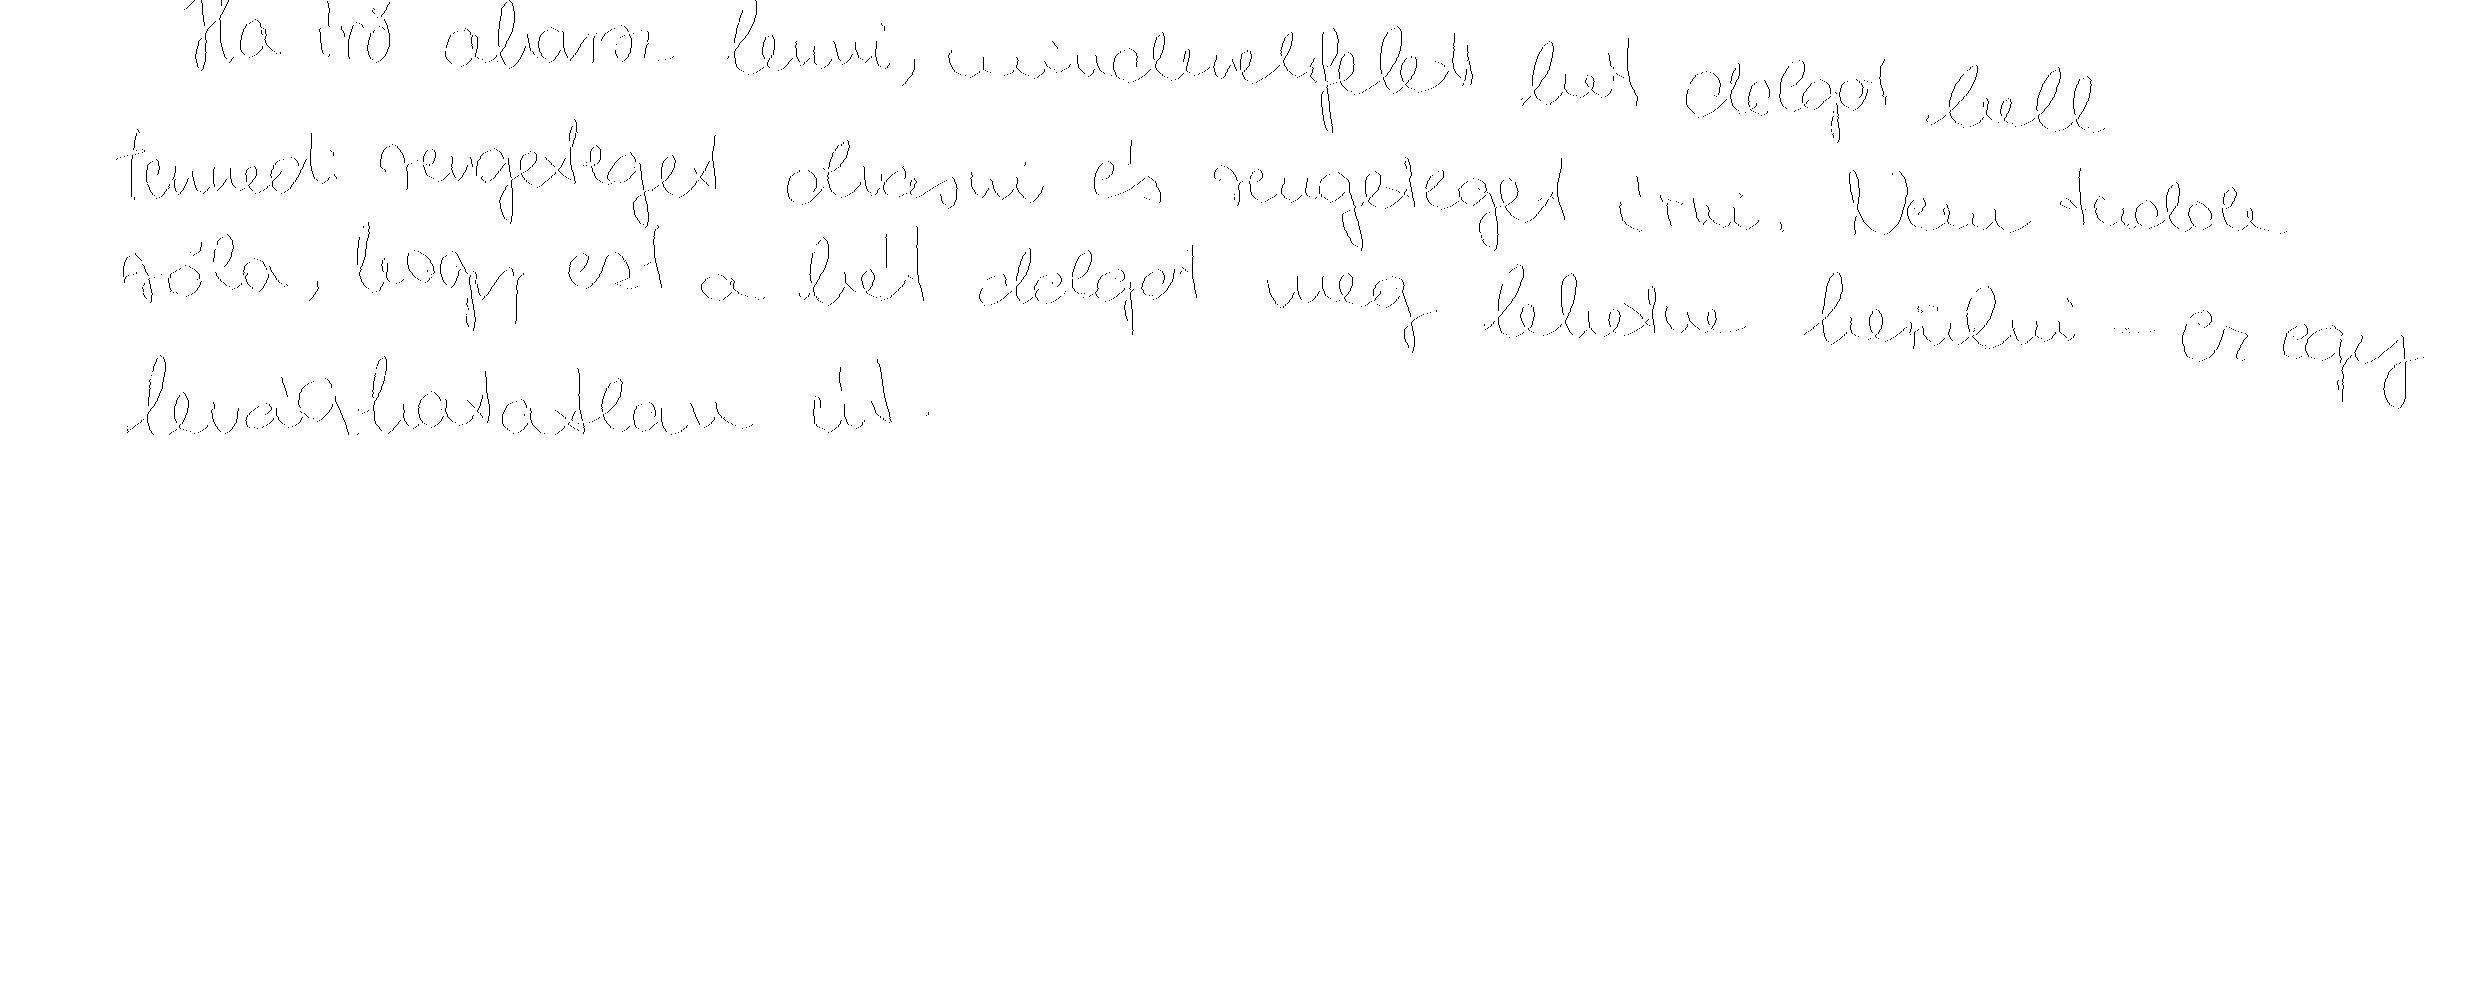 Ha író akarsz lenni, mindenekfelett két dolgot kell
tenned: rengeteget olvasni és rengeteget írni. Nem tudok
róla, hogy ezt a két dolgot meg lehetne kerülni – ez egy
levághatatlan út.